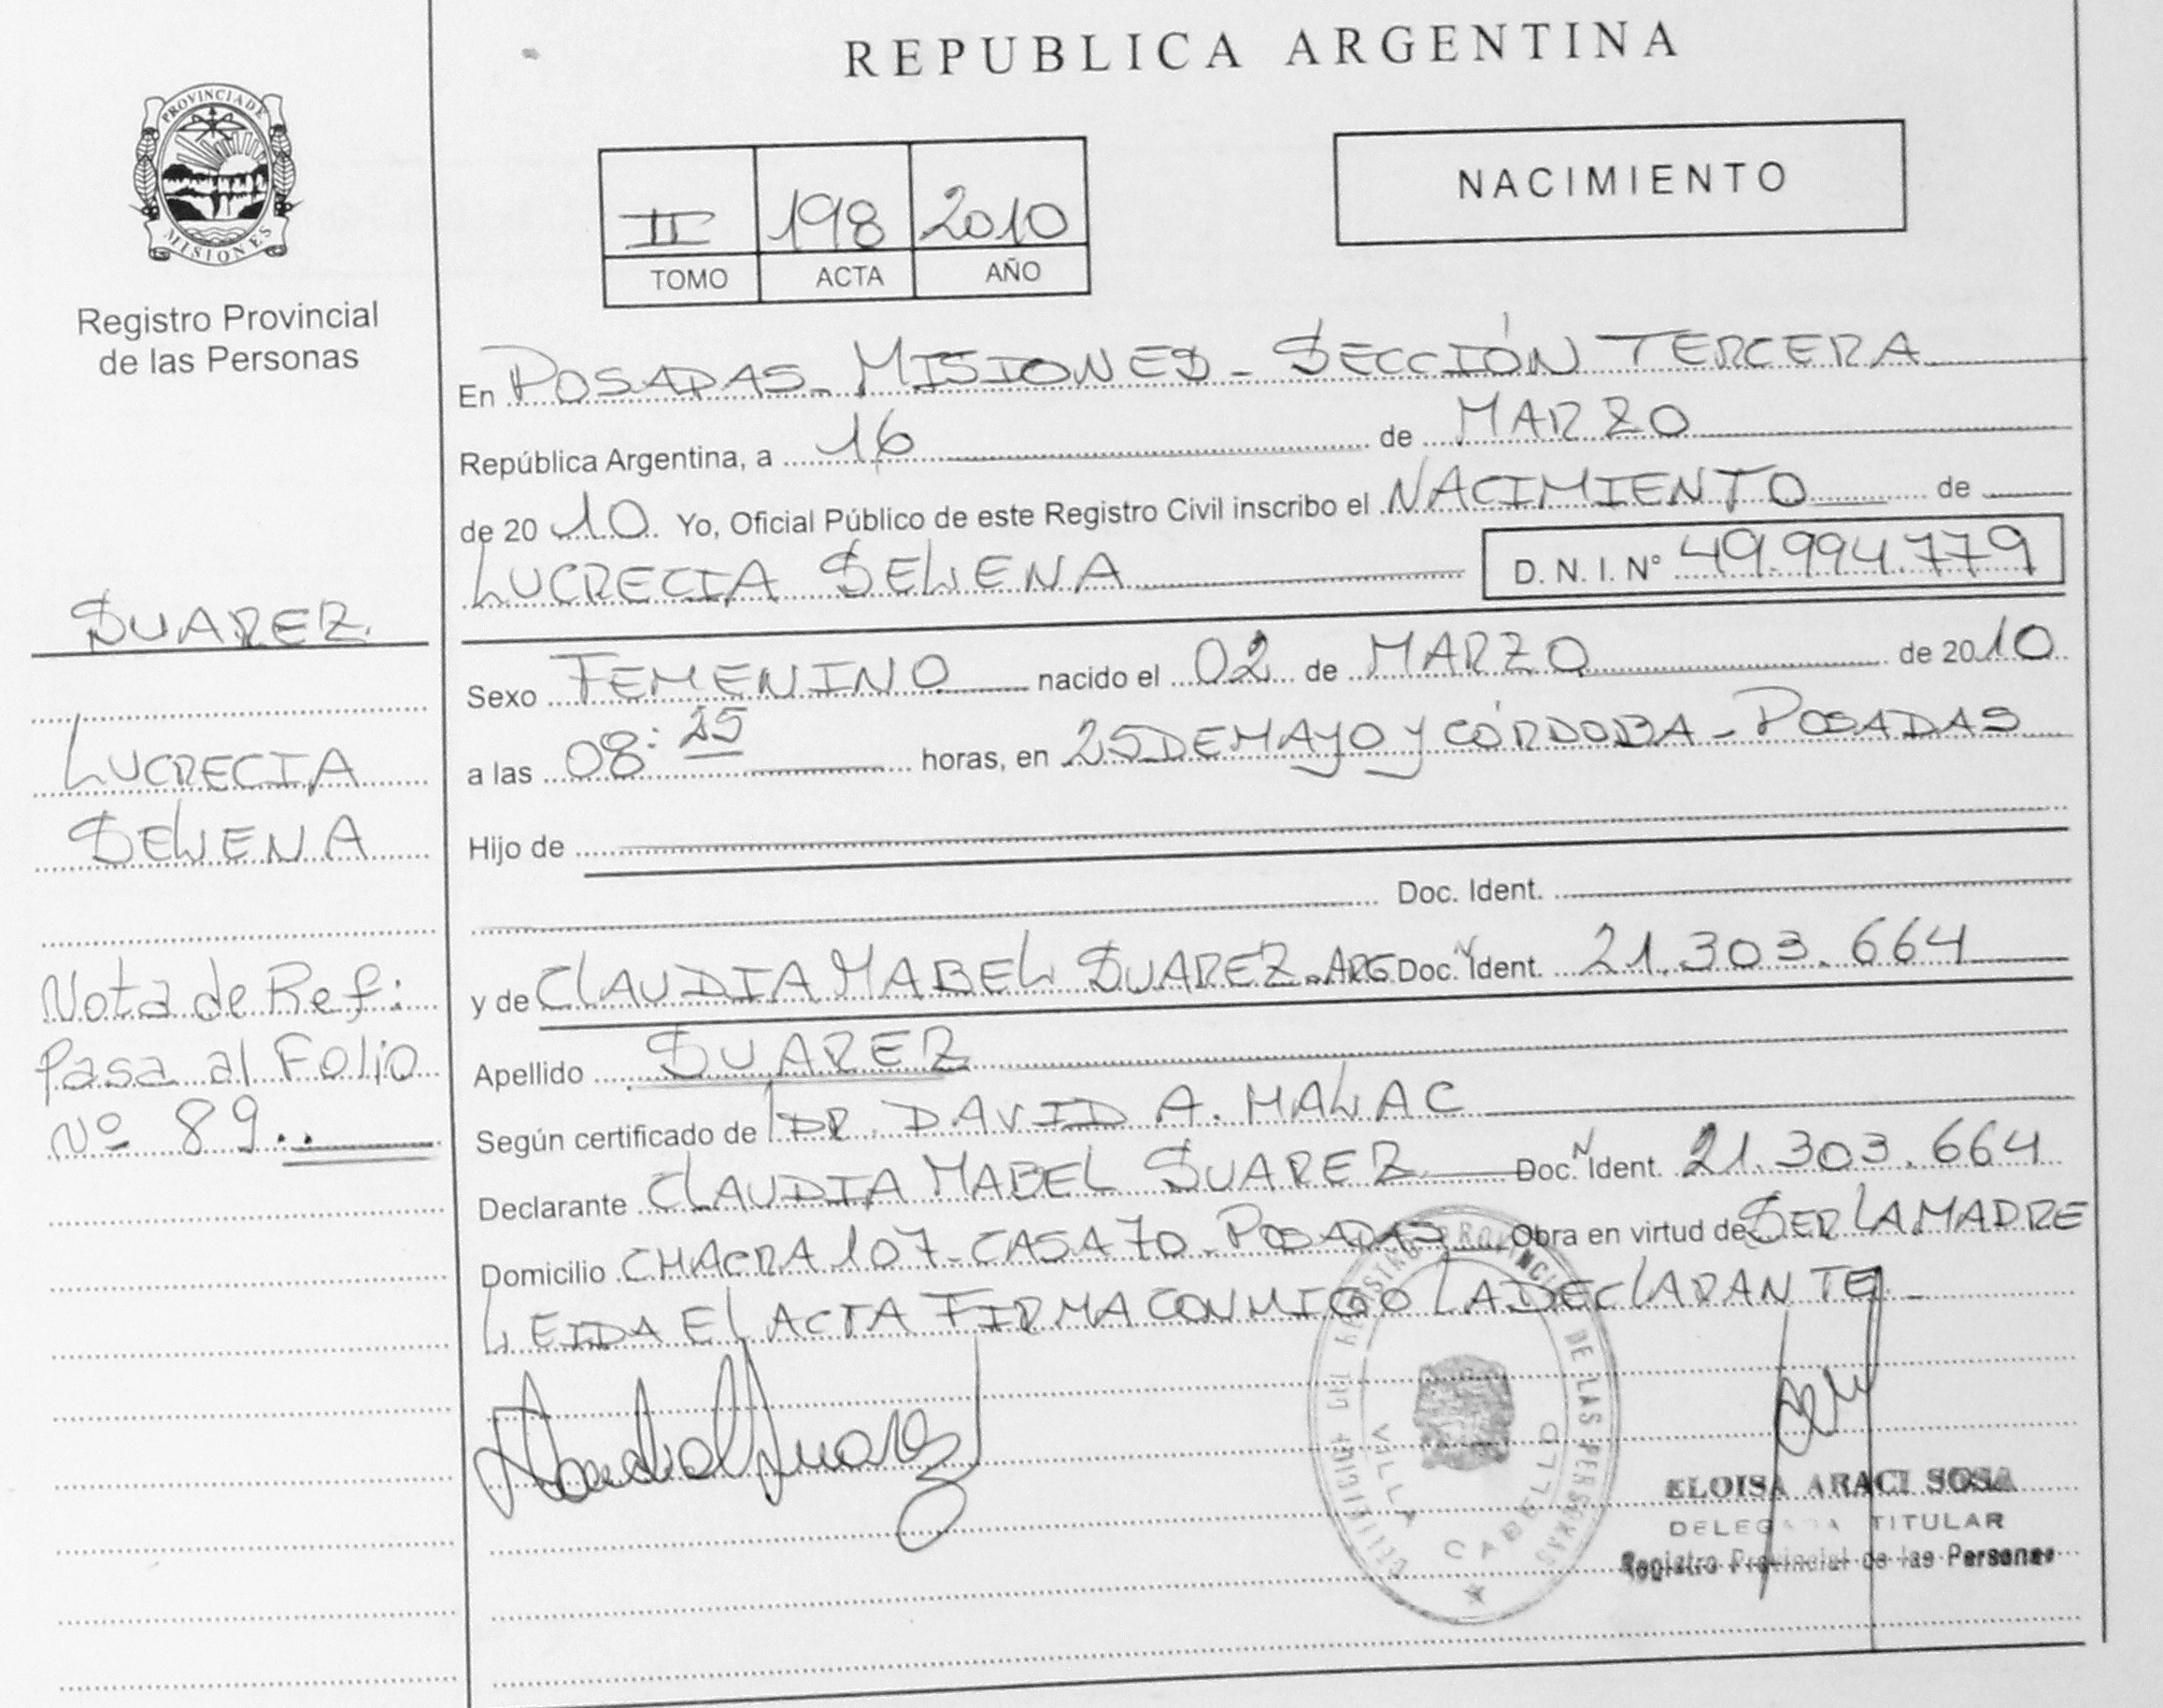 REPUBLICA ARGENTINA
PROVINCIA DE MISIONES
Registro Provincial
de las Personas
II 198 2010
TOMO ACTA AÑO
NACIMIENTO
En POSADAS - MISIONES - SECCIÓN TERCERA
República Argentina, a 16 de MARZO
de 2010 Yo, Oficial Público de este Registro Civil inscribo el NACIMIENTO de
LUCRECIA SELENA D. N. I. Nº 49.994.779
Sexo FEMENINO nacido el 02 de MARZO de 2010
a las 08:25 horas, en 25 DE MAYO Y CÓRDOBA - POSADAS
Hijo de
Doc. Ident.
y de CLAUDIA MABEL SUAREZ - ARG Doc. N Ident. 21.303.664
Apellido SUAREZ
Según certificado de DR. DAVID A. MALAC
Declarante CLAUDIA MABEL SUAREZ Doc. N Ident. 21.303.664
Domicilio CHACRA 107 - CASA 70 - POSADAS Obra en virtud de SER LA MADRE
LEIDA EL ACTA FIRMA CONMIGO LA DECLARANTE -
SUAREZ
LUCRECIA
SELENA
Nota de Ref:
Pasa al Folio
Nº 89..
REGISTRO PROVINCIAL DE LAS PERSONAS
VILLA CABELLO
ELOISA ARACI SOSA
DELEGADA TITULAR
Registro Provincial de las Personas